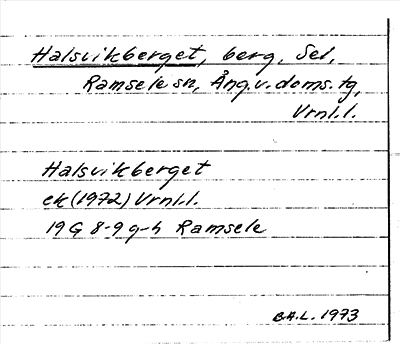 Halsvikberget, berg, Sel,
Ramsele sn, Ång.v.doms.tg,
Vrnl.l.
Halsvikberget
ek (1972) Vrnl.l.
19 G 8-9 g-h Ramsele
B.A.L. 1973